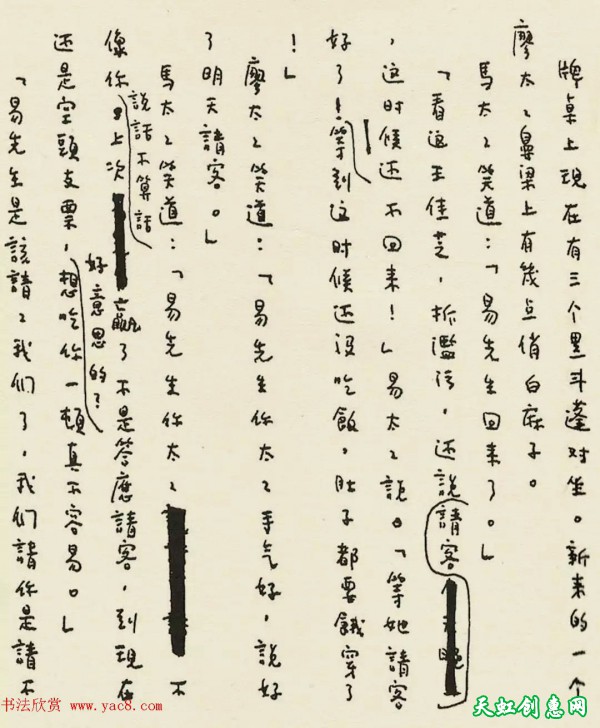 牌桌上現在有三个黑斗蓬对坐。新来的一个
廖太〻鼻梁上有幾点俏白麻子。
馬太〻笑道：「易先生回来了。」
「看这王佳芝，拆濫污，还說請客
，这时候还不回来！」易太〻說。「等她請客
好了！等到这时候还没吃飯，肚子都要餓穿了
！」
廖太〻笑道：「易先生你太〻手气好，說好
了明天請客。」
馬太〻笑道：「易先生你太〻不
說話不算話
像你上次贏了不是答應請客，到現在
好意思的？
还是空頭支票，想吃你一頓真不容易。」
「易先生是該請〻我们了，我们請你是請不
书法欣赏 www.yac8.com
天虹创惠网